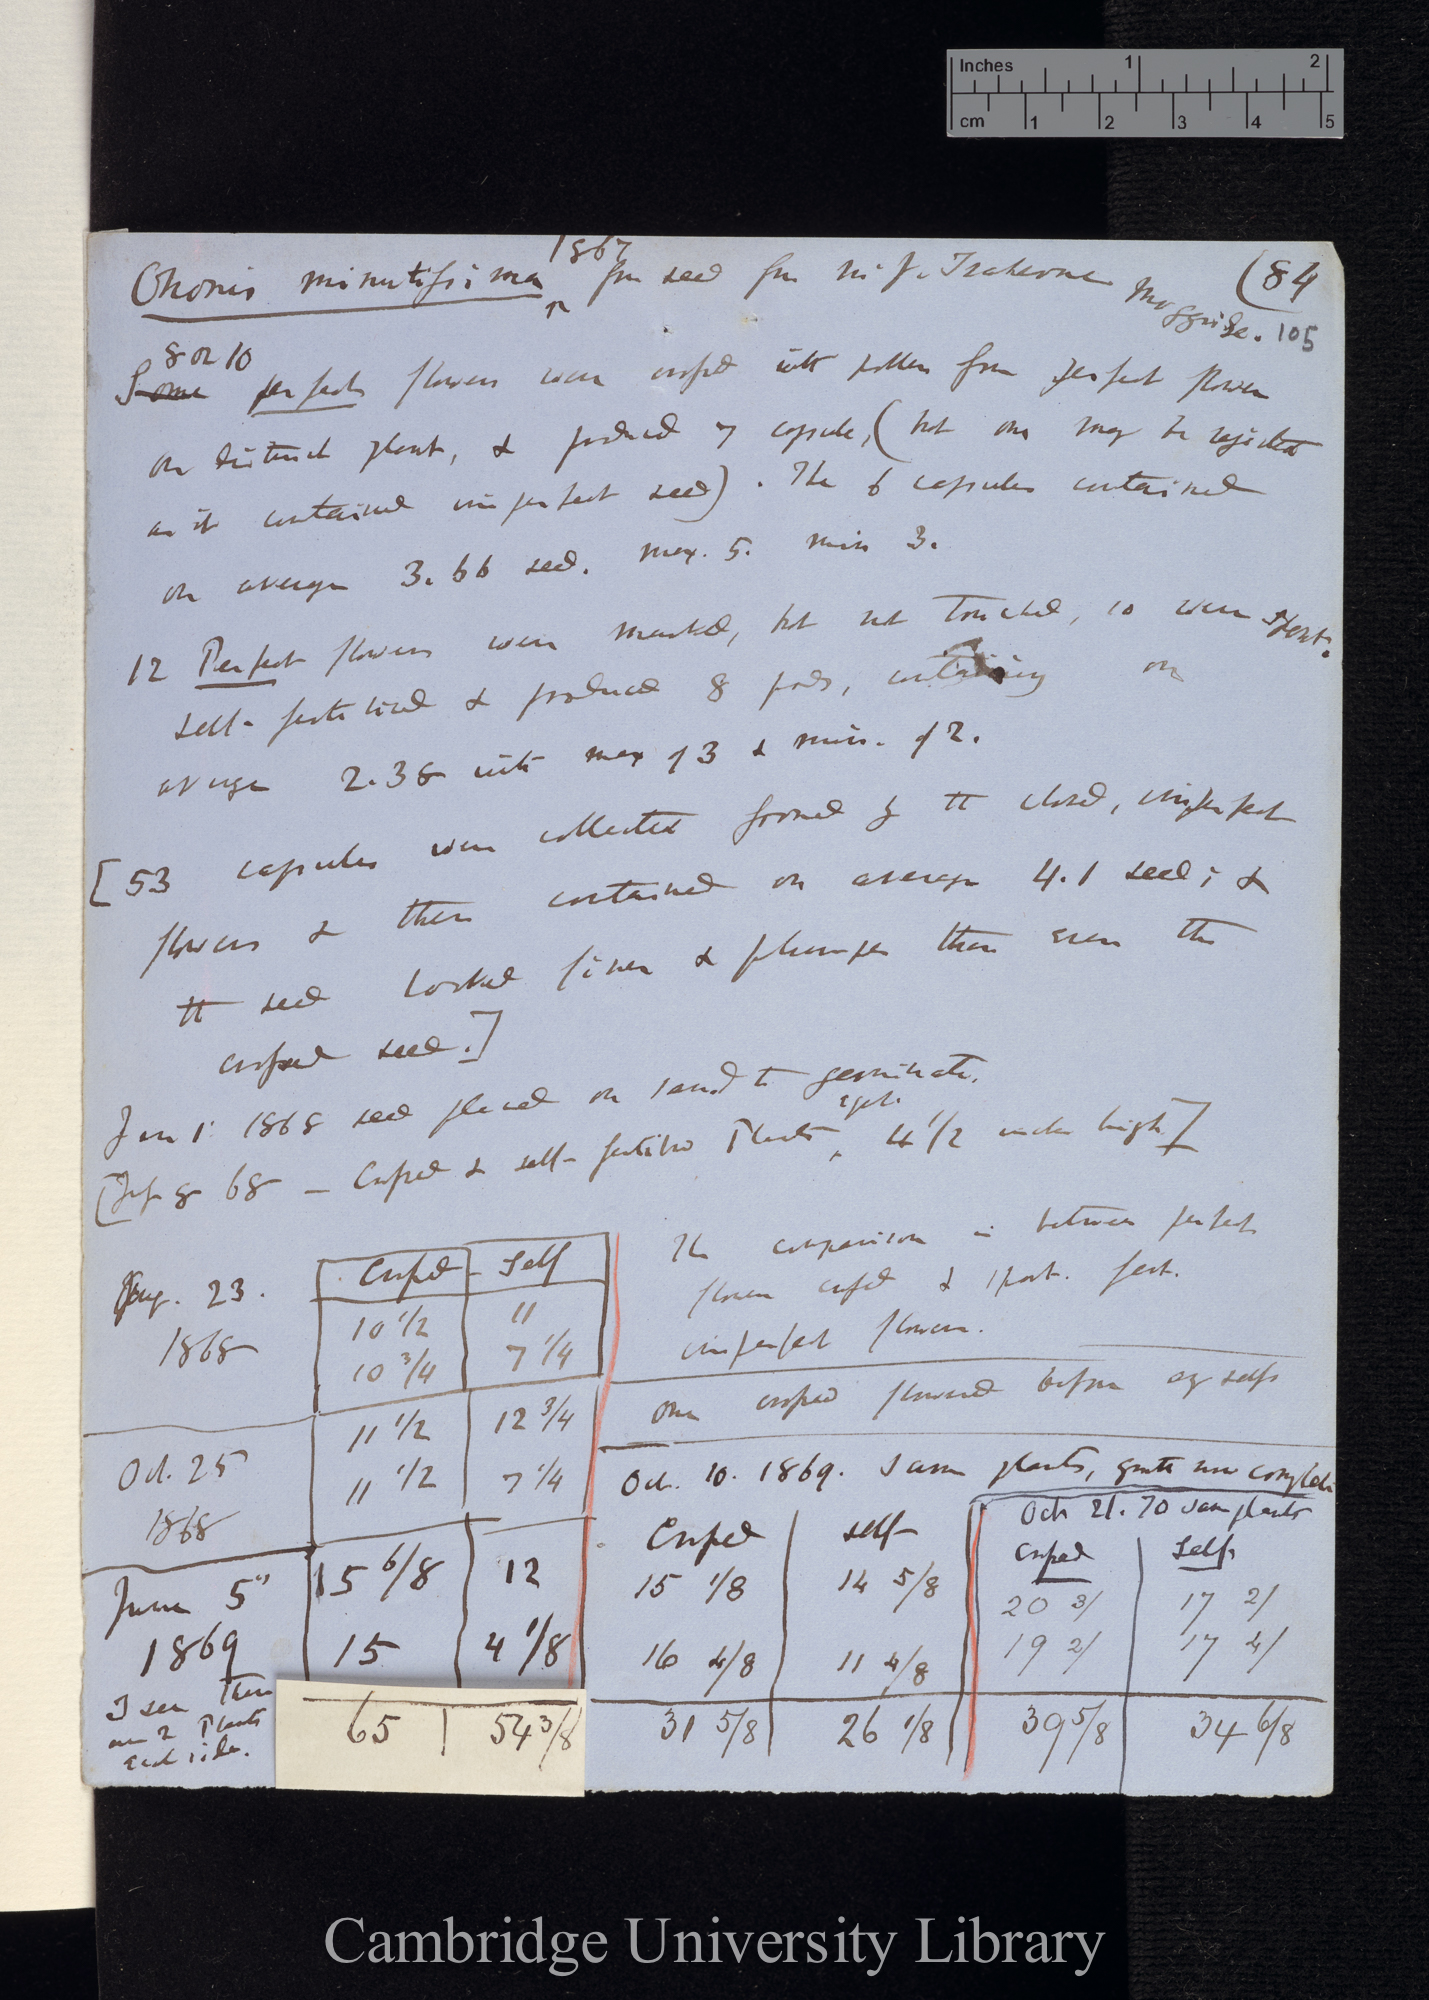 Inches 1 2
cm 1 2 3 4 5
Ononis minutissima 1867 from seed from Mr J. Traherne Moggridge. (84
105
Some 8 or 10 perfect flowers were crossed with pollen from perfect flower
on distinct plant, & produced 7 capsules, (but one may be rejected
as it contained imperfect seed). The 6 capsules contained
on average 3.66 seed. Max. 5. Min 3.
12 Perfect flowers were marked, but not touched, so were spont.
self-fertilised & produced 8 pods, containing on
average 2.38 with max of 3 & min. of 2.
[53 capsules were collected formed by the closed, imperfect
flowers & these contained on average 4.1 seed; & 
the seed looked finer & plumper than even the
crossed seed.]
Jan 1. 1868 seed placed on sand to germinate.
68 – Crossed & self-fertilised Plants equal. 4 1/2 inches high]
Aug. 23.
1868
Crossed Self
10 1/2 11
10 3/4 7 1/4
The comparison is between perfect
flowers crossed & spont. fert.
imperfect flowers.
Oct. 25
1868
11 1/2 12 3/4
11 1/2 7 1/4
One crossed flowered before any selfs
June 5"
1869
15 6/8 12
15 4 1/8
I see there
are 2 Plants
each side.
65 54 3/8
Oct. 10. 1869. Same plants, growth now complete
Crossed Self
15 1/8 14 5/8
16 4/8 11 4/8
31 5/8 26 1/8
Oct 21. 70 same plants
Crossed Selfs
20 3/ 17 2/
19 2/ 17 4/
39 5/8 34 6/8
Cambridge University Library